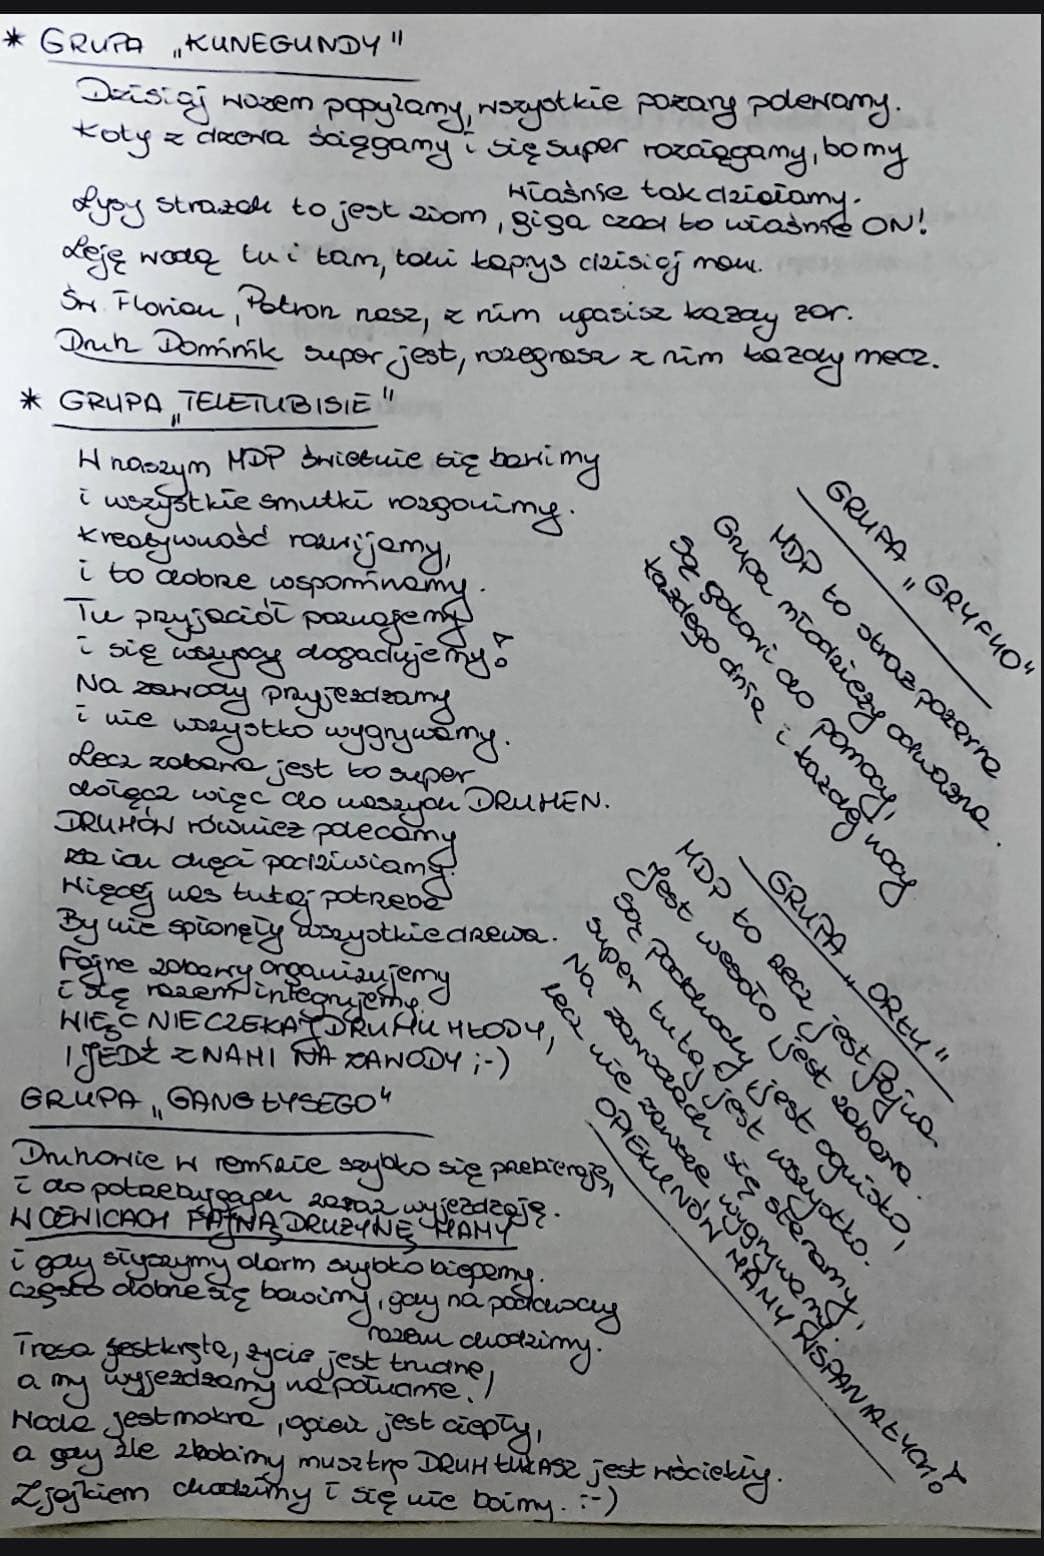 * GRUPA „KUNEGUNDY"
Dzisiaj wozem popylamy, wszystkie pożary polewamy.
Koty z drzewa ściągamy i się super rozciągamy, bo my
właśnie tak działamy.
Łysy strażak to jest ziom, giga czad to właśnie ON!
Leję wodą tu i tam, taki kaprys dzisiaj mam.
Św. Florian, Patron nasz, z nim ugasisz każdy żar.
Druh Dominik super jest, rozegrasz z nim każdy mecz.
* GRUPA „TELETUBISIE"
W naszym MDP świetnie się bawimy
i wszystkie smutki rozgonimy.
Kreatywność rozwijamy,
i to dobrze wspominamy.
Tu przyjaciół poznajemy
i się wszyscy dogadujemy!
Na zawody przyjeżdżamy
i nie wszystko wygrywamy.
Lecz zabawa jest to super
dołącz więc do naszych DRUHEN.
DRUHÓW również polecamy
za ich chęci podziwiamy.
Więcej nas tutaj potrzeba
By nie spłonęły wszystkie drzewa.
Fajne zabawy organizujemy
i się razem integrujemy.
WIĘC NIE CZEKAJ DRUHU MŁODY,
I JEDŹ Z NAMI NA ZAWODY ;-)
GRUPA „GANG ŁYSEGO"
Druhowie w remizie szybko się przebierają,
i do potrzebujących zaraz wyjeżdżają.
W CEWICACH FAJNĄ DRUŻYNĘ MAMY
i gdy słyszymy alarm szybko biegniemy.
Często dobrze się bawimy, gdy na podchody
razem chodzimy.
Trasa jest kręta, życie jest trudne,
a my wyjeżdżamy na południe!
Woda jest mokra, ogień jest ciepły,
a gdy źle zrobimy musztrę DRUH ŁUKASZ jest wściekły.
Z jajkiem chodzimy i się nie boimy. :-)
GRUPA „GRYFNO"
MDP to straż pożarna
Grupa młodzieży odważna.
Są gotowi do pomocy,
każdego dnia i każdej nocy
GRUPA „ORŁY"
MDP to rzecz jest fajna
Jest wesoło jest zabawa.
Są podchody jest ognisko,
super tutaj jest wszystko.
Na zawodach się staramy,
lecz nie zawsze wygrywamy.
OPIEKUNÓW MAMY WSPANIAŁYCH!